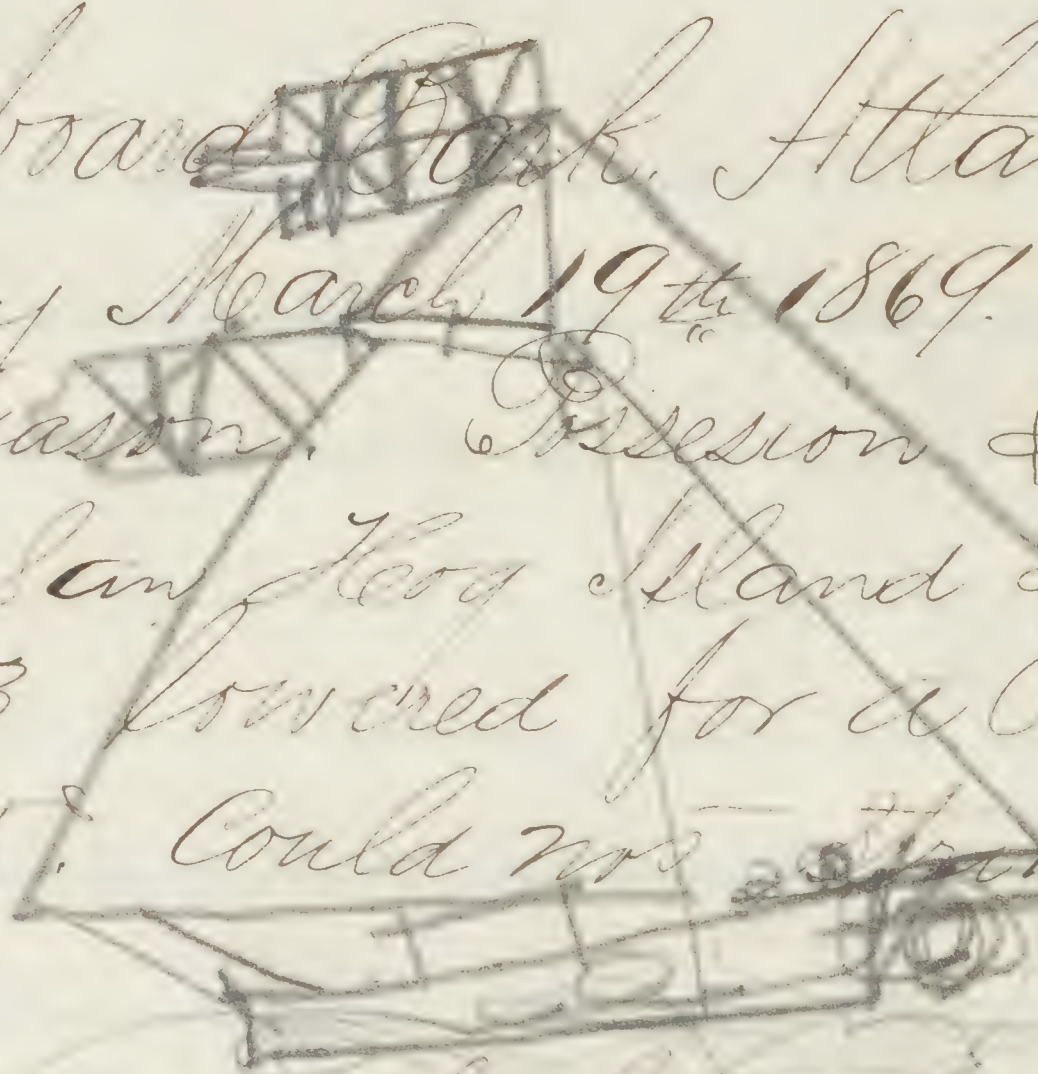 board Bark. Atla
March 19th 1869.
ason. Possesion &
Hog Island
lowered for a
Could not